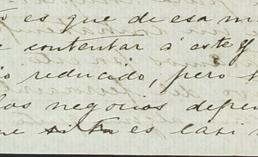 es que de esa m
contentar á este y
reducido, pero
los negocios depen
es casi